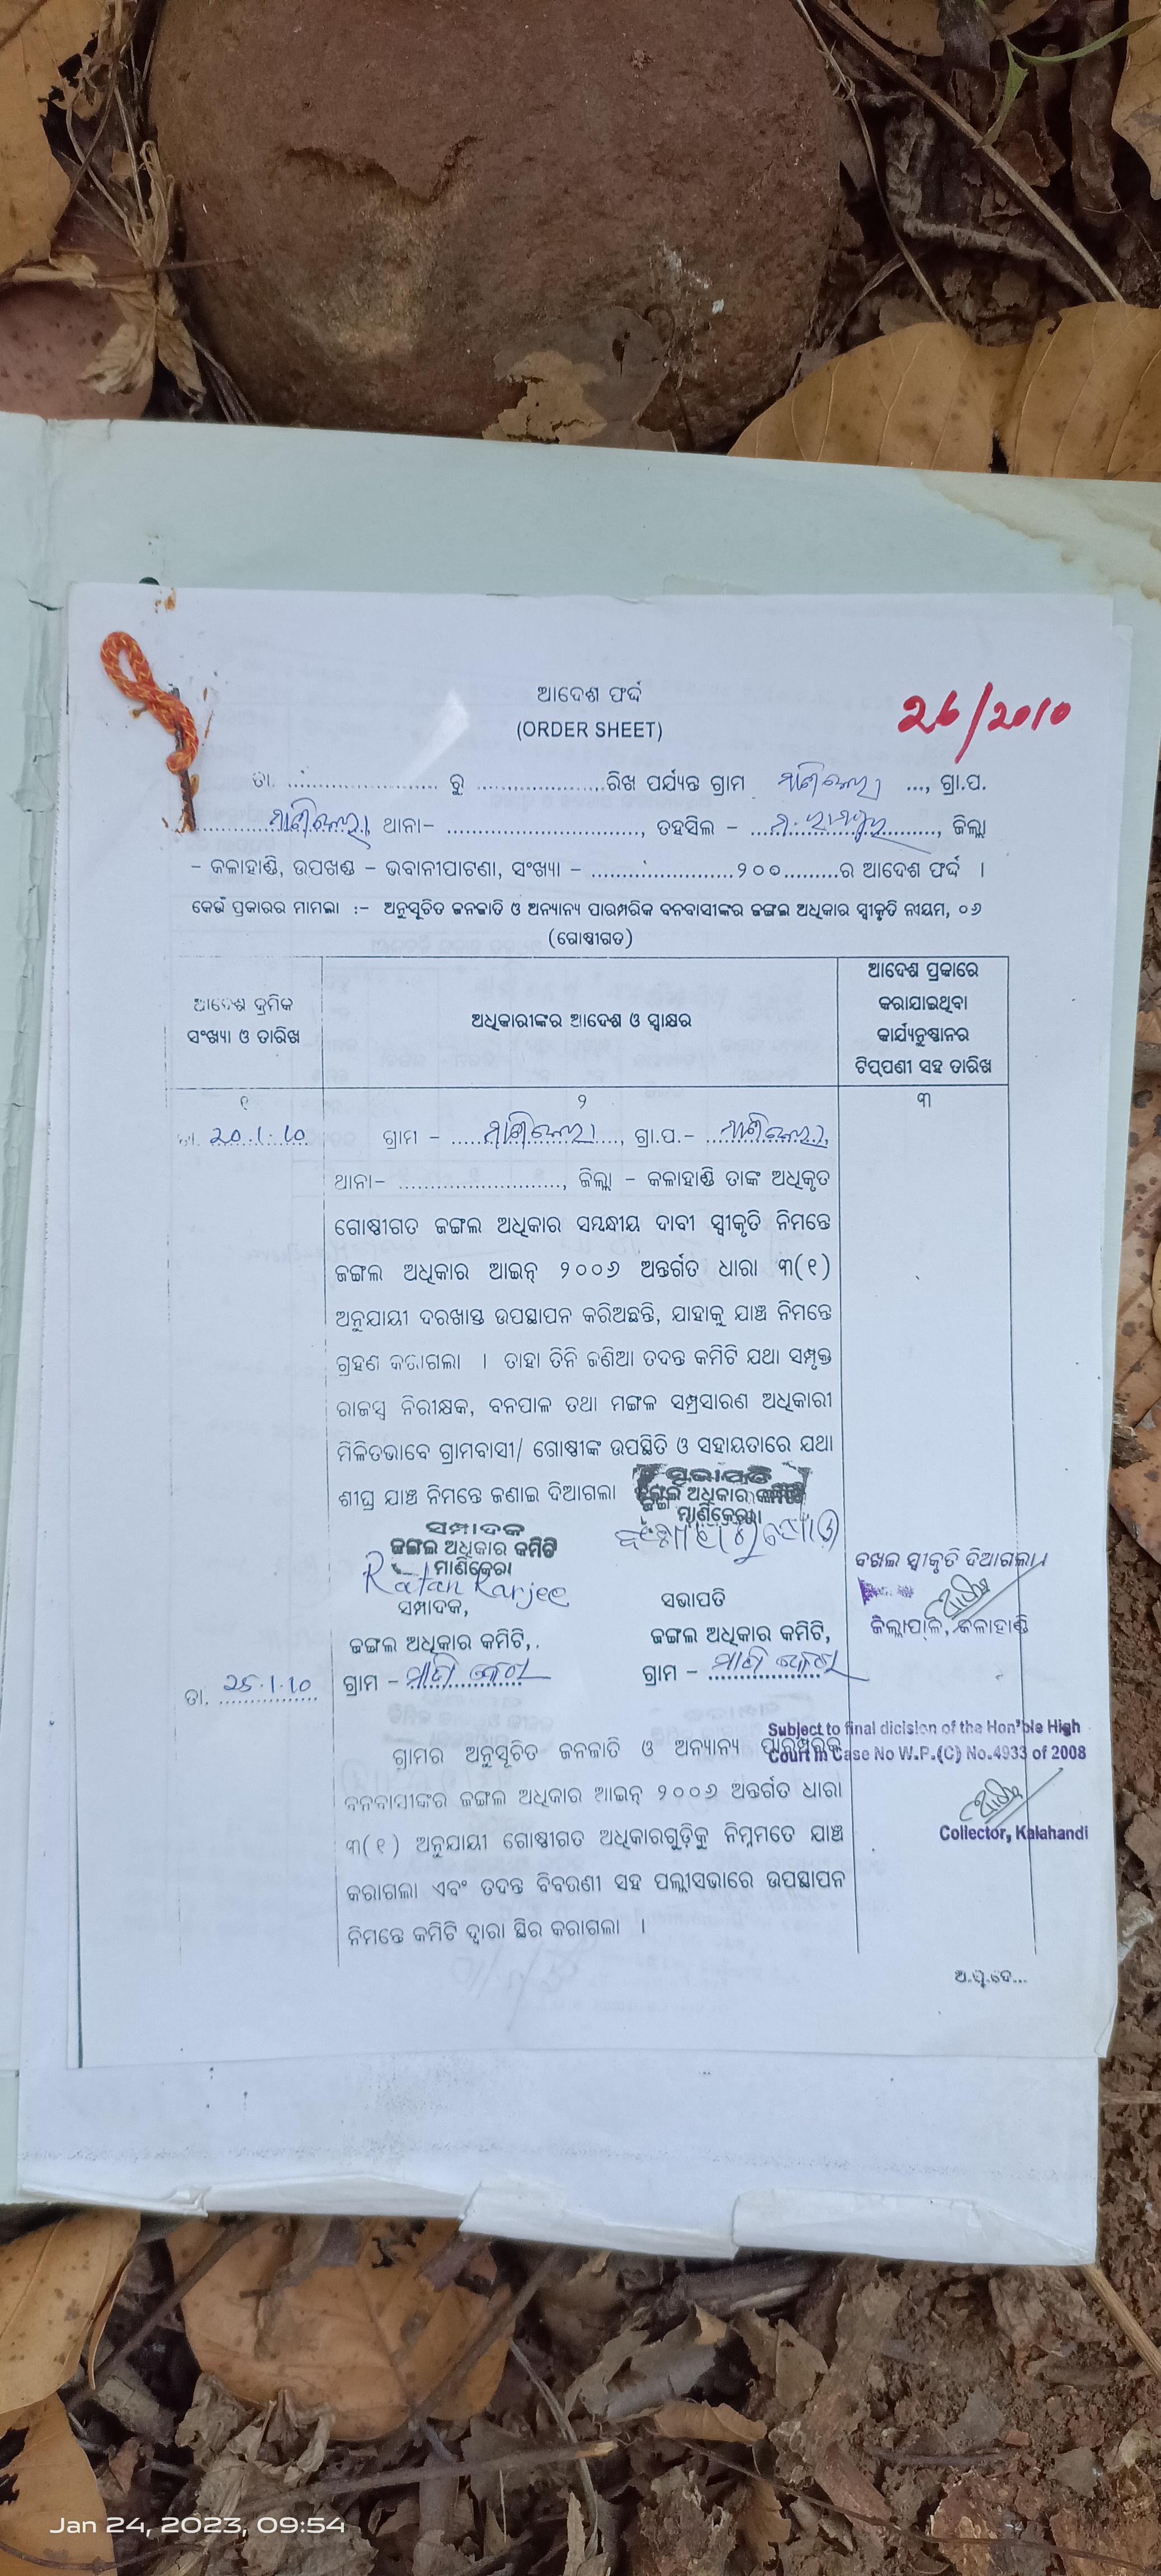 ଆଦେଶ ଫର୍ଦ୍ଦ
(ORDER SHEET)
26/2010
ତା. ........................ ରୁ ......................ରିଖ ପର୍ଯ୍ୟନ୍ତ ଗ୍ରାମ ମାଣିକେରା ..., ଗ୍ରା.ପ.
ମାଣିକେରା ଥାନା- ................................, ତହସିଲ - ମ. ରାମପୁର, ଜିଲ୍ଲା
- କଳାହାଣ୍ଡି, ଉପଖଣ୍ଡ - ଭବାନୀପାଟଣା, ସଂଖ୍ୟା - ........................୨୦୦.........ର ଆଦେଶ ଫର୍ଦ୍ଦ ।
କେଉଁ ପ୍ରକାରର ମାମଲା :- ଅନୁସୂଚିତ ଜନଜାତି ଓ ଅନ୍ୟାନ୍ୟ ପାରମ୍ପରିକ ବନବାସୀଙ୍କର ଜଙ୍ଗଲ ଅଧିକାର ସ୍ୱୀକୃତି ନିୟମ, ୦୬
(ଗୋଷ୍ଠୀଗତ)
ଆଦେଶ କ୍ରମିକ
ସଂଖ୍ୟା ଓ ତାରିଖ
ଅଧିକାରୀଙ୍କର ଆଦେଶ ଓ ସ୍ୱାକ୍ଷର
ଆଦେଶ ପ୍ରକାରେ
କରାଯାଇଥିବା
କାର୍ଯ୍ୟନୁଷ୍ଠାନର
ଟିପ୍ପଣୀ ସହ ତାରିଖ
୧ ୨ ୩
ତା. 20.1.10 ଗ୍ରାମ - ମାଣିକେରା, ଗ୍ରା.ପ.- ମାଣିକେରା,
ଥାନା- ............................, ଜିଲ୍ଲା - କଳାହାଣ୍ଡି ତାଙ୍କ ଅଧିକୃତ
ଗୋଷ୍ଠୀଗତ ଜଙ୍ଗଲ ଅଧିକାର ସମ୍ବନ୍ଧୀୟ ଦାବୀ ସ୍ୱୀକୃତି ନିମନ୍ତେ
ଜଙ୍ଗଲ ଅଧିକାର ଆଇନ୍ ୨୦୦୬ ଅନ୍ତର୍ଗତ ଧାରା ୩(୧)
ଅନୁଯାୟୀ ଦରଖାସ୍ତ ଉପସ୍ଥାପନ କରିଅଛନ୍ତି, ଯାହାକୁ ଯାଞ୍ଚ ନିମନ୍ତେ
ଗ୍ରହଣ କରାଗଲା । ତାହା ତିନି ଜଣିଆ ତଦନ୍ତ କମିଟି ଯଥା ସମ୍ପୃକ୍ତ
ରାଜସ୍ୱ ନିରୀକ୍ଷକ, ବନପାଳ ତଥା ମଙ୍ଗଳ ସମ୍ପ୍ରସାରଣ ଅଧିକାରୀ
ମିଳିତଭାବେ ଗ୍ରାମବାସୀ/ ଗୋଷ୍ଠୀଙ୍କ ଉପସ୍ଥିତି ଓ ସହାୟତାରେ ଯଥା
ଶୀଘ୍ର ଯାଞ୍ଚ ନିମନ୍ତେ ଜଣାଇ ଦିଆଗଲା
ସଭାପତି
ଜଙ୍ଗଲ ଅଧିକାର କମିଟି
ମାଣିକେରା
ସମ୍ପାଦକ
ଜଙ୍ଗଲ ଅଧିକାର କମିଟି
ମାଣିକେରା
Ratan Karjee
ସମ୍ପାଦକ,
ଜଙ୍ଗଲ ଅଧିକାର କମିଟି,
ଗ୍ରାମ - ମାଣିକେରା
ସଭାପତି
ଜଙ୍ଗଲ ଅଧିକାର କମିଟି,
ଗ୍ରାମ - ମାଣିକେରା
ଦଖଲ ସ୍ୱୀକୃତି ଦିଆଗଲା ।
ଜିଲ୍ଲାପାଳ, କଳାହାଣ୍ଡି
ତା. 25.1.10
Subject to final dicision of the Hon'ble High
Court in Case No W.P.(C) No.4933 of 2008
Collector, Kalahandi
ଗ୍ରାମର ଅନୁସୂଚିତ ଜନଜାତି ଓ ଅନ୍ୟାନ୍ୟ ପାରମ୍ପରିକ
ବନବାସୀଙ୍କର ଜଙ୍ଗଲ ଅଧିକାର ଆଇନ୍ ୨୦୦୬ ଅନ୍ତର୍ଗତ ଧାରା
୩(୧) ଅନୁଯାୟୀ ଗୋଷ୍ଠୀଗତ ଅଧିକାରଗୁଡ଼ିକୁ ନିମ୍ନମତେ ଯାଞ୍ଚ
କରାଗଲା ଏବଂ ତଦନ୍ତ ବିବରଣୀ ସହ ପଲ୍ଲୀସଭାରେ ଉପସ୍ଥାପନ
ନିମନ୍ତେ କମିଟି ଦ୍ୱାରା ସ୍ଥିର କରାଗଲା ।
ଅ.ପୃ.ଦେ...
Jan 24, 2023, 09:54